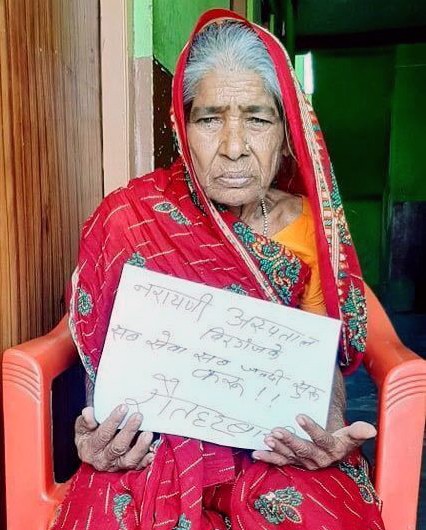 नरायणी अस्पताल
विरगंजके
सब सेवा सब जल्दी सुरू
करू !!
रौतहट